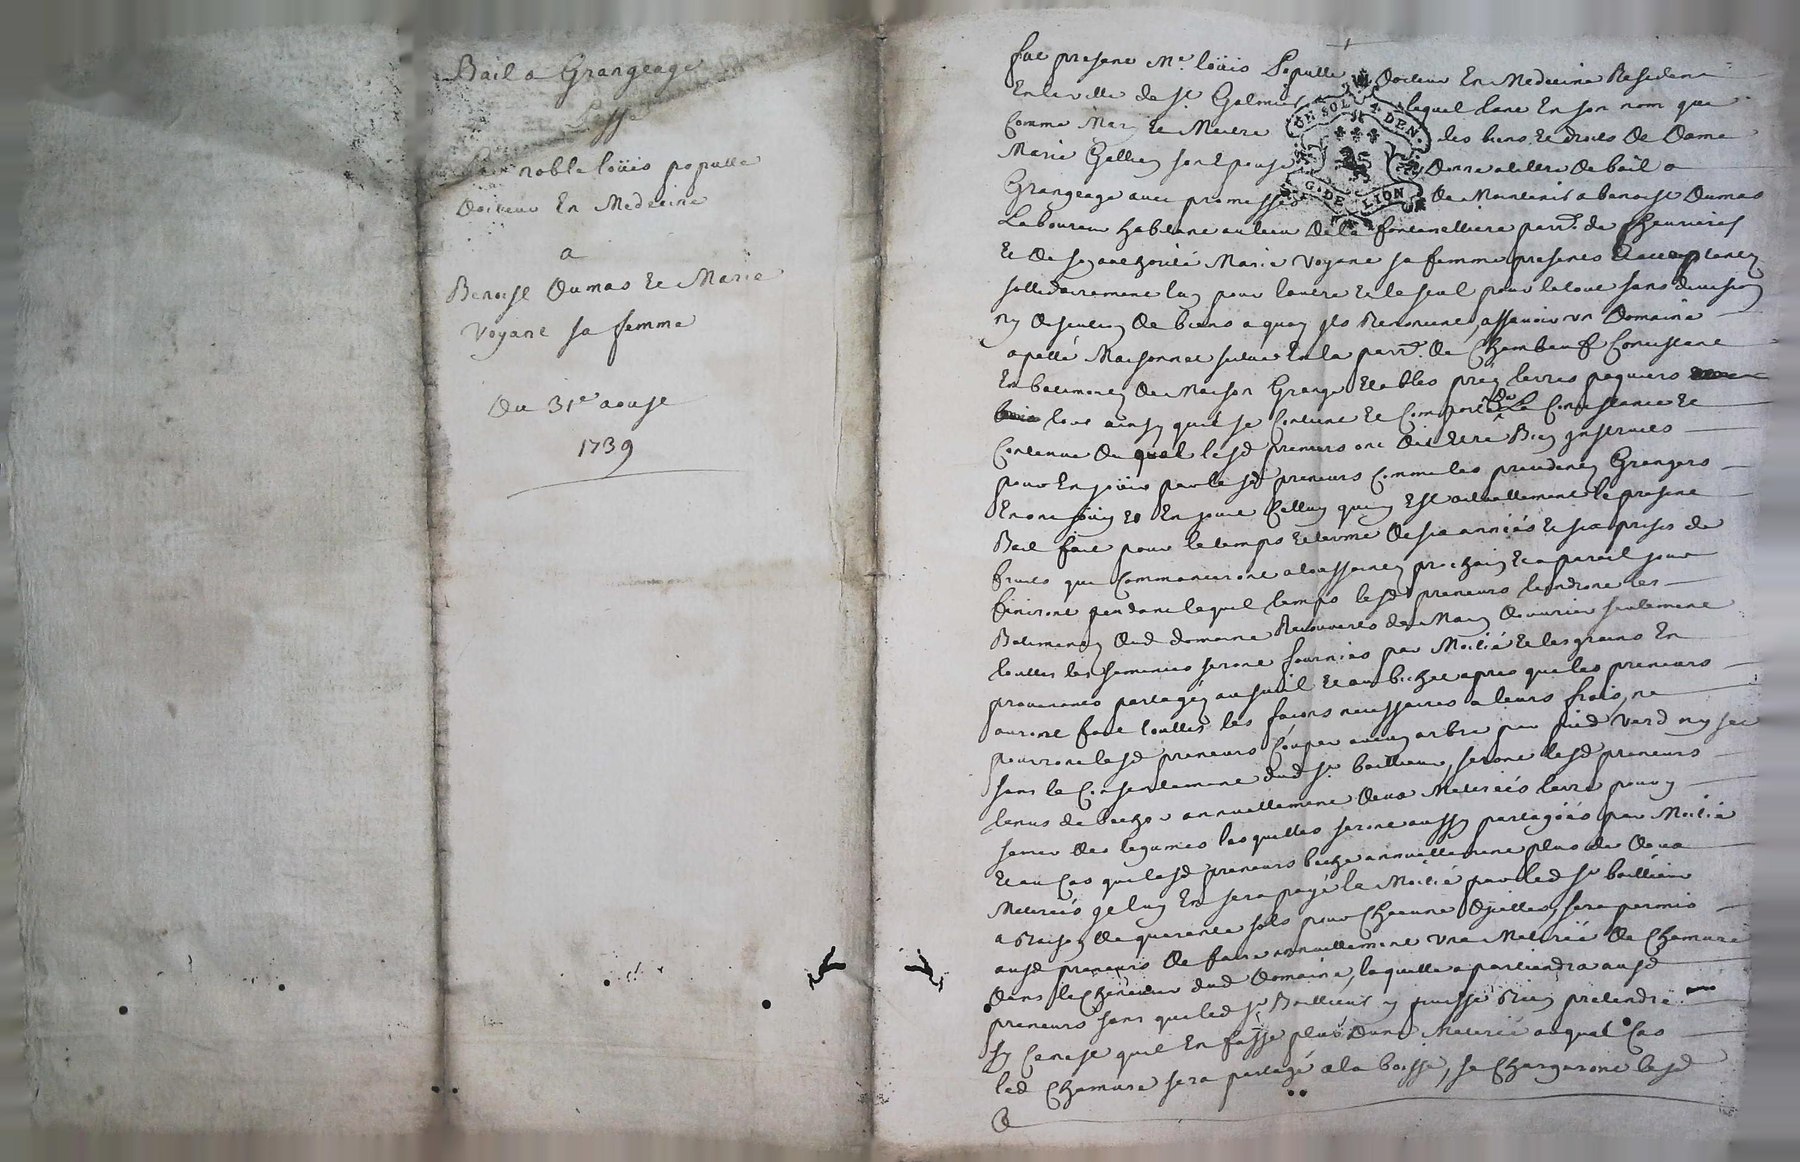 Bail a Grangeage
Passé
Par noble loüis populle
Docteur En Medecine
a
Benoist Dumas Et Marie
Voyant sa femme
Du 31e aoust
1739
fut present Me. loüis Populle Docteur En Medecine Resident
En la ville de St. Galmier lequel tant En son nom que
Comme Mary Et Maitre des biens Et droits De Dame
Marie Gellier son Epouse Donne a tiltre De bail a
Grangeage avec promesses De Maintenir a benoist Dumas
Laboureur habitant au lieu De la fontanelliere parr. de Chevrieres
Et De son authorité Marie Voyant sa femme presents Et acceptants
sollidairement l'un pour l'autre Et le seul pour le tout sans division
ny Discution De biens a quoy ils Renoncent, assavoir un Domaine
apellé Maisonnet scitué En la parr. De Chambeuf Consistant
En batiments De Maison Grange Etables prez terres paquiers
tout ainsy quil se Contient Et Comporte De La Consistance Et
Contenue Du quel lesd preneurs ont dit Etre Bien jnstruits
pour En joüir par lesd preneurs Comme les precedents Grangers
En ont joüy Et En jouit Celluy quy y Est actuellement le present
Bail fait pour le temps Et terme De six années Et six prises de
fruits qui Commanceront a la toussaints prochain Et a pareil jour
finiront pendant lequel temps lesd preneurs tiendront les
Batiments Dud domaine Recouverts de Main Douvrier seulement
touttes les semences seront fournies par Moitié Et les grains En
provenants partagés au sueil Et au bichet apres que les preneurs
auront fait touttes les façons necessaires a leurs frais, ne
pourront lesd preneurs Couper aucun arbre par pied Verd ny sec
sans le Consentement dud sr. bailleur, seront lesd preneurs
tenus de becher annuellement Deux Meterées terre pour y
semer Des legumes lesquelles seront aussy partagées par Moitié
Et au Cas que lesd preneurs beche annuellement plus de Deux
Meterées jl luy En sera payé la Moitié par led sr bailleur
a Raison De quarante sols pour Chacune Djcelles, sera permis
ausd preneurs De faire annuellement une Meterée De Chanvre
Dans le Chenevier dud Domaine, laquelle apartiendra ausd
preneurs sans que led sr. Bailleur y puisse Rien pretendre
sy Ce n'est quil En fasse plus D'une Meterée auquel Cas
led Chanvre sera partagé a la baisse, se Chargeront lesd